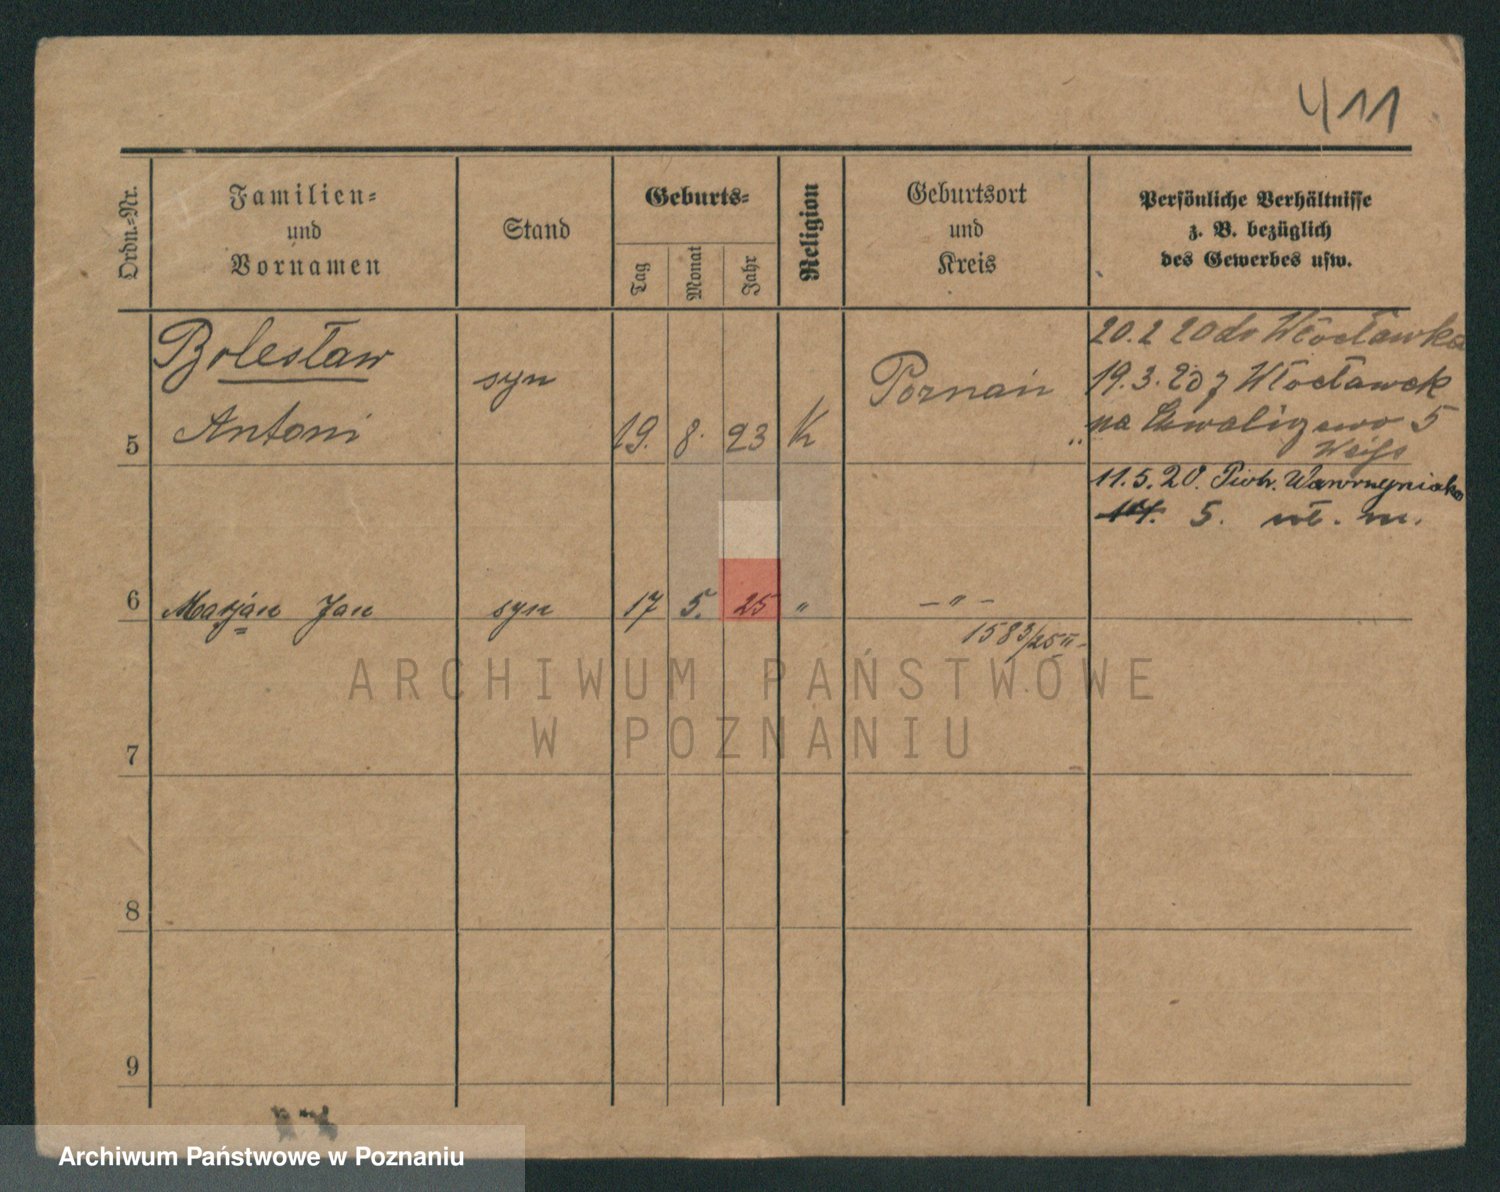 411
Ordn.=Nr.
Familien=
und
Vornamen
Stand
Geburts=
Tag
Monat
Jahr
Religion
Geburtsort
und
Kreis
Persönliche Verhältnisse
z. B. bezüglich
des Gewerbes usw.
Bolesław
Antoni
5
syn
19. 8. 23
K
Poznań
"
20.2 20 do Włocławka
19.3.20 z Włocławek
na 5
11.5.20. Piotr. Wawrzyniaka
5. wł. m.
6 Marjan Jan syn 17 5. 25 " – " –
1583/25 II
7
8
9
ARCHIWUM PAŃSTWOWE
W POZNANIU
Archiwum Państwowe w Poznaniu